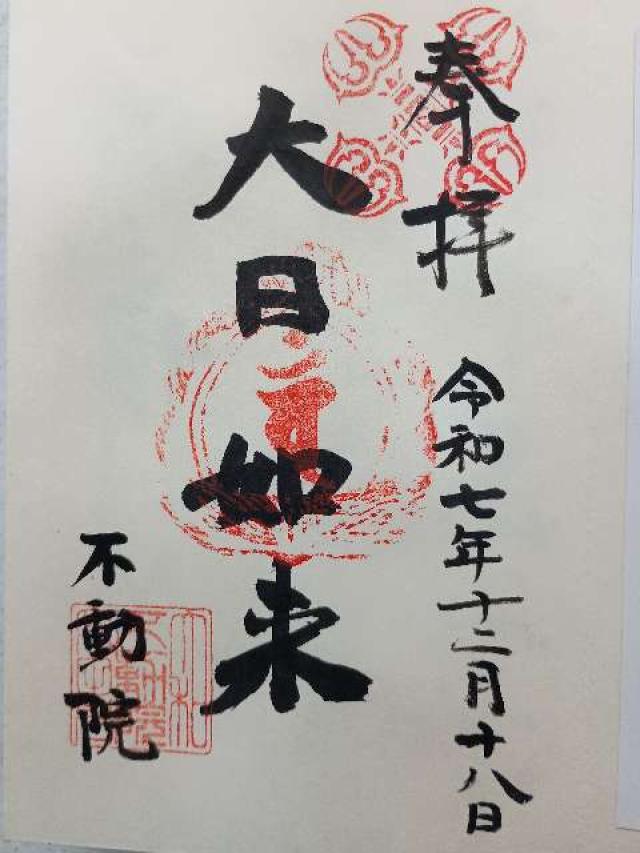 奉拝
令和七年十二月十八日
大日如来
不動院